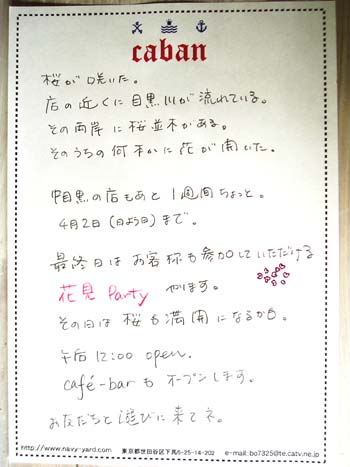 caban
桜が咲いた。
店の近くに目黒川が流れている。
その両岸に桜並木がある。
そのうちの何本かに花が開いた。
中目黒の店もあと1週間ちょっと。
4月2日(日よう日)まで。
最終日はお客様も参加していただける
花見 Party やります。
その日は桜も満開になるかも。
午後12:00 open.
café-barもオープンします。
お友だちと遊びに来てネ。
http://www.navy-yard.com 東京都世田谷区下馬5-25-14-202 e-mail: bo7325@te.catv.ne.jp